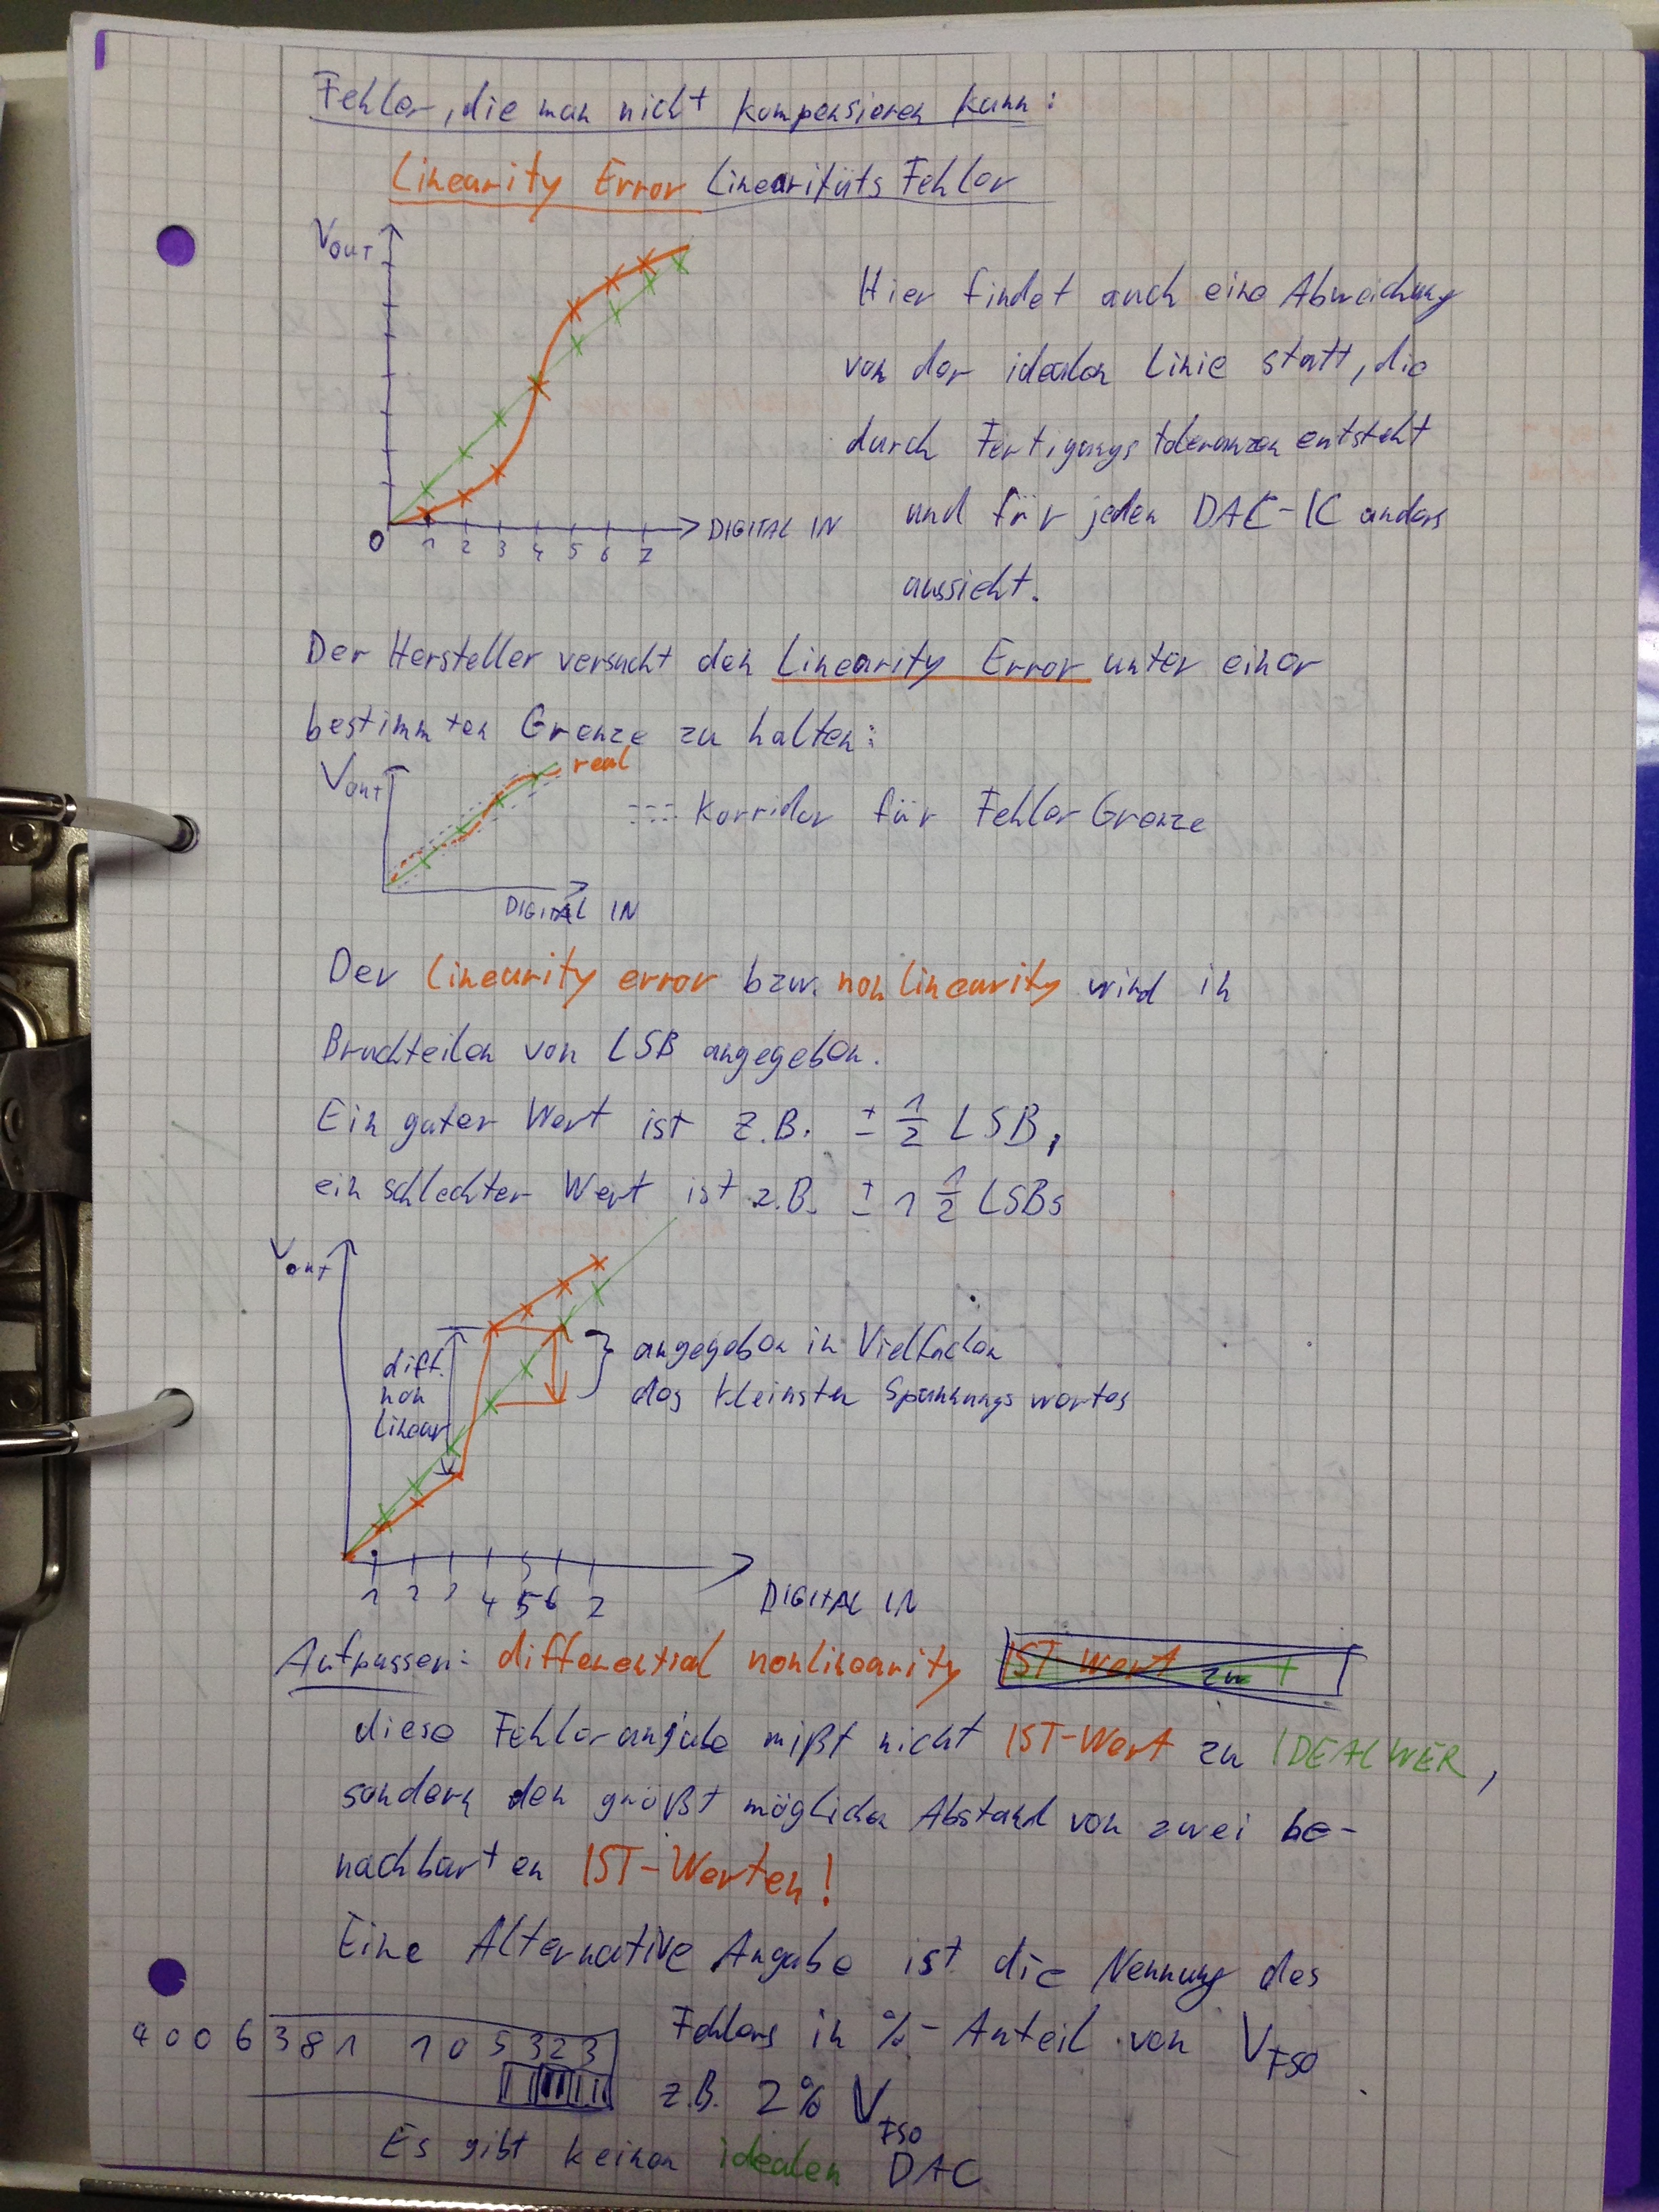 Fehler, die man nicht kompensieren kann:
Linearity Error Linearitäts Fehler
VOUT
Hier findet auch eine Abweichung
von der idealen Linie statt, die
durch Fertigungstoleranzen entsteht
und für jeden DAC-IC anders
aussieht.
0 1 2 3 4 5 6 7 DIGITAL IN
Der Hersteller versucht den Linearity Error unter einer
bestimmten Grenze zu halten:
Vout real
--- Korridor für Fehler Grenze
DIGITAL IN
Der linearity error bzw. non linearity wird in
Bruchteilen von LSB angegeben.
Ein guter Wert ist z.B. ± 1/2 LSB,
ein schlechter Wert ist z.B. ± 1 1/2 LSBs
Vout
diff.
non
linear
} angegeben in Vielfachen
des kleinsten Spannungswertes
1 2 3 4 5 6 7
DIGITAL IN
Aufpassen: differential nonlinearity IST-Wert zu
diese Fehlerangabe mißt nicht IST-Wert zu IDEALWER,
sondern den größt möglichen Abstand von zwei be-
nachbarten IST-Werten!
Eine Alternative Angabe ist die Nennung des
Fehlers in %-Anteil von VFSO
4006381 105323
z.B. 2% VFSO
Es gibt keinen idealen DAC